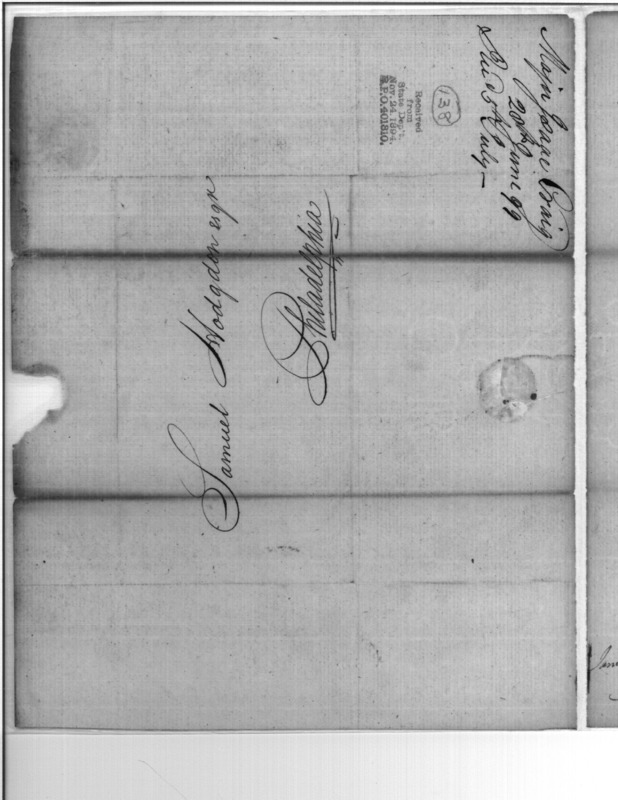 Majr Isaac Craig
28th June 99
Recd 5th July —
138
Received
from
State Dep't.
Nov. 24 1894
R.P.O. 401810.
Samuel Hodgdon esqr
Philadelphia